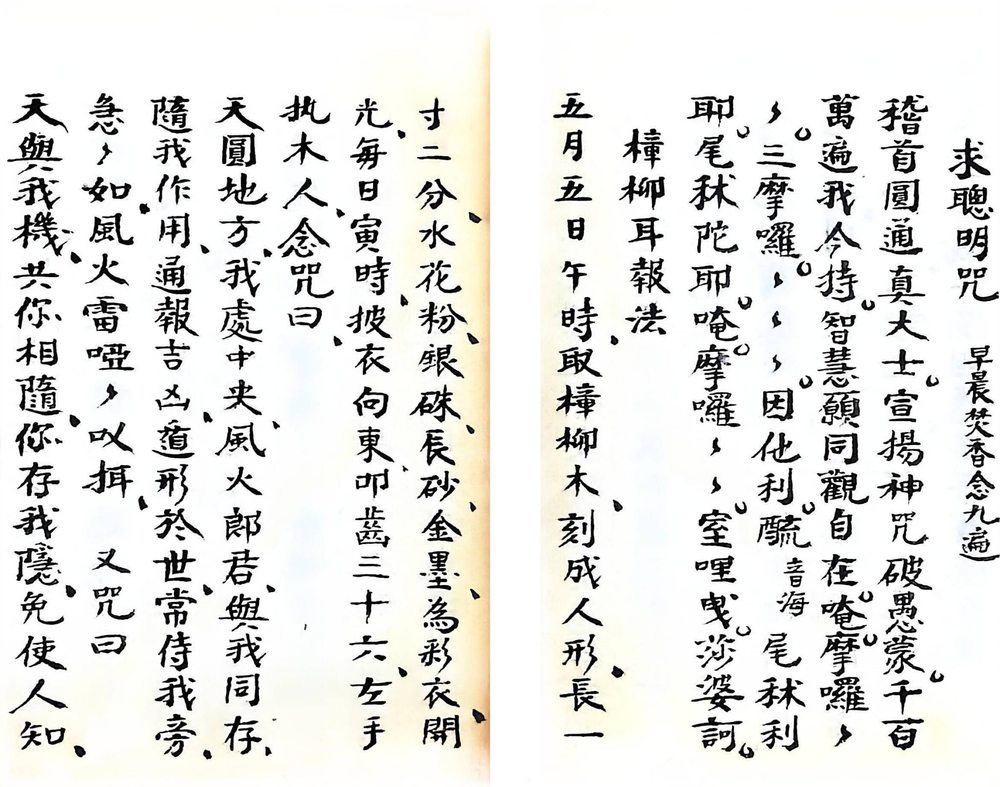 求聰明咒 早晨焚香念九遍
稽首圓通真大士宣揚神咒破愚蒙千百
萬遍我今持智慧願同觀自在唵摩囉〻
〻三摩囉〻〻〻因他利酼音海尾秫利
耶尾秫陀耶唵摩囉〻〻室哩曳莎婆訶
樟柳耳報法
五月五日午時取樟柳木刻成人形長一
寸二分水花粉銀硃長砂金墨為彩衣開
光每日寅時披衣向東叩齒三十六左手
执木人念咒曰
天圓地方我處中央風火郎君與我同存
隨我作用通報吉凶遁形於世常侍我旁
急〻如風火雷啞〻㕥揖 又咒曰
天與我機共你相隨你存我隱免使人知